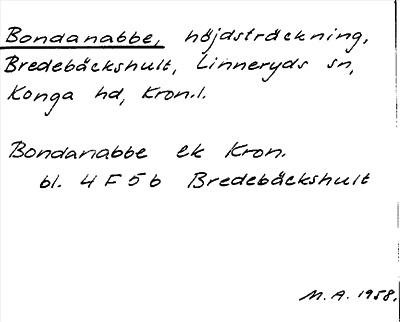 Bondanabbe, höjdsträckning,
Bredebäckshult, Linneryds sn,
Konga hd, Kron.l.
Bondanabbe ek Kron.
bl. 4 F 5 b Bredebäckshult
M.A. 1958.